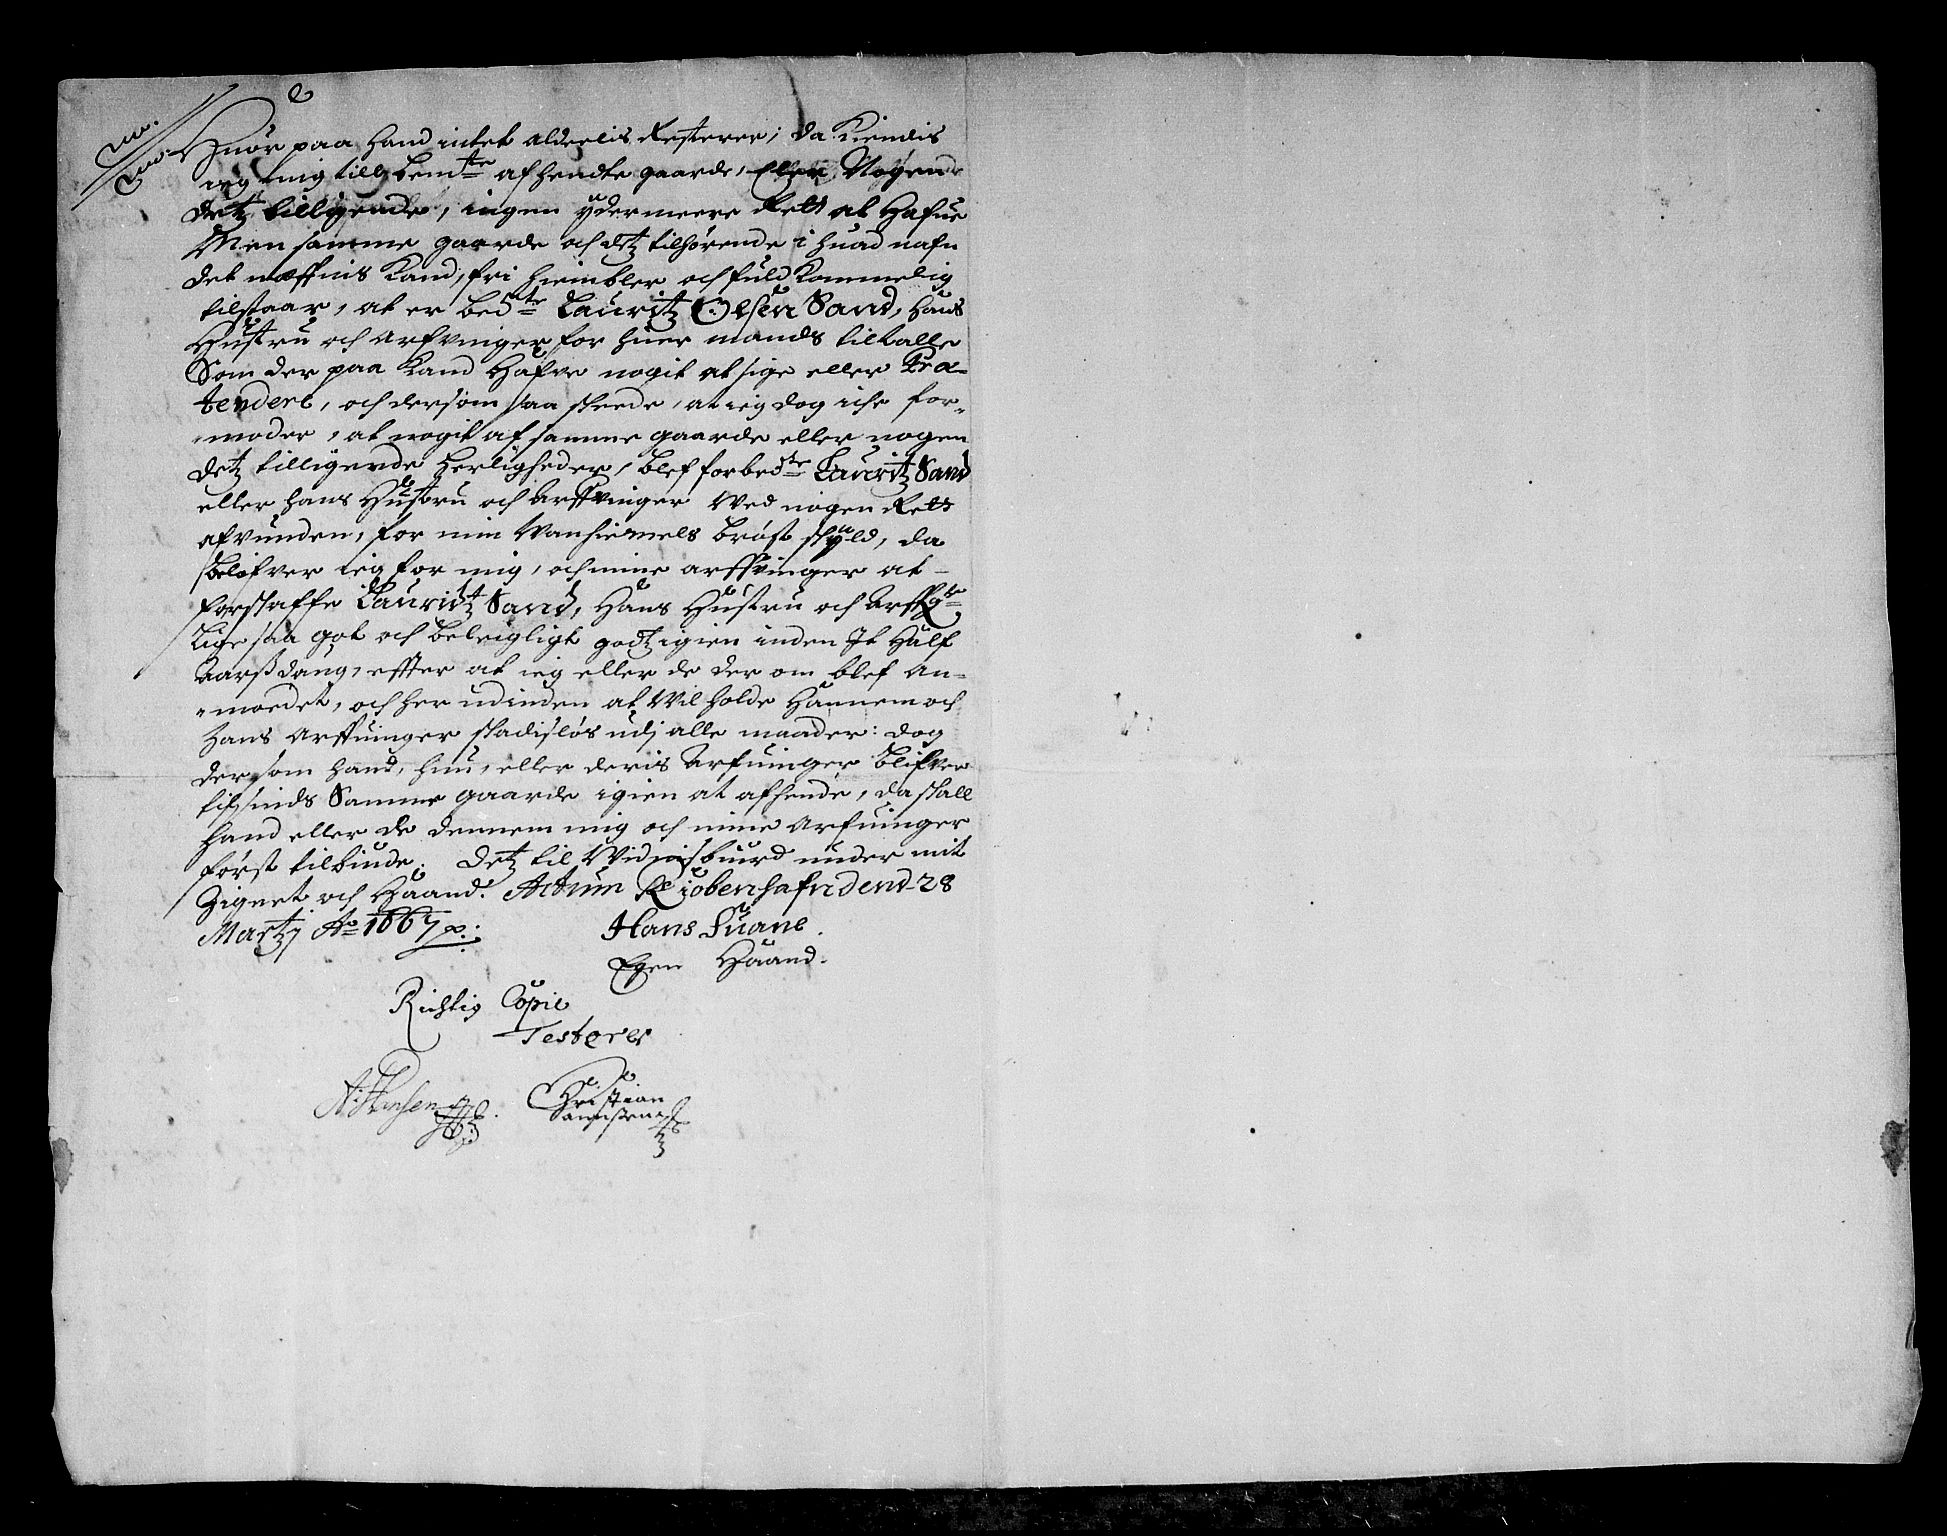 Huor paa hand intet aldeelis Resterer, da Kiendis
ieg mig till bem:te afhendte gaarde, Eller Nogen
detz tilligende, ingen ÿdermeere Rett at Hafue
Men samme gaarde och detz tilhørende i huad nafn
det næffnis Kand, fri hiembler och fuldKommelig
tilstaar, at er bed:te Lauritz Olsen Sand, hans
Hustru och Arfvinger for huer mands tiltalle
Som der paa Kand Hafve nogit at sige eller Præ-
tendere, och dersom saa skeede, at ieg dog iche for-
moder, at nogit af samme gaarde eller nogen
detz tilligende herligheder, blef for bed:te Lauritz Sand
eller hans Hustru och Arffvinger Ved nogen Rett
afvunden, for min Vanhiemels brøst skyld, da
belofver ieg for mig, och mine arffvinger at
forskaffe Lauridtz Sand, Hans Hustru och Arffg:re
Lige saa got och beleigligt godtz igien inden It Half
Aarß dang, effter at ieg eller de der om blef An-
moedet, och her udinden at Vil holde Hannem och
hans Arffuinger skadisløs udj alle maader: dog
der som hand, hun, eller deris Arfuinger blifver
till sinds Samme gaarde igien at afhende, da skall
hand eller de dennem mig och mine Arfuinger
først tilbiude. Detz til Vidnisbiurd under mit
Zignet och Haand. Actum Kiøbenhafn dend 28
Martzj Ao 1667 p:
Hans Suane.
Egen Haand.
Richtig Copie
Testerer
A: Hansen
Christian